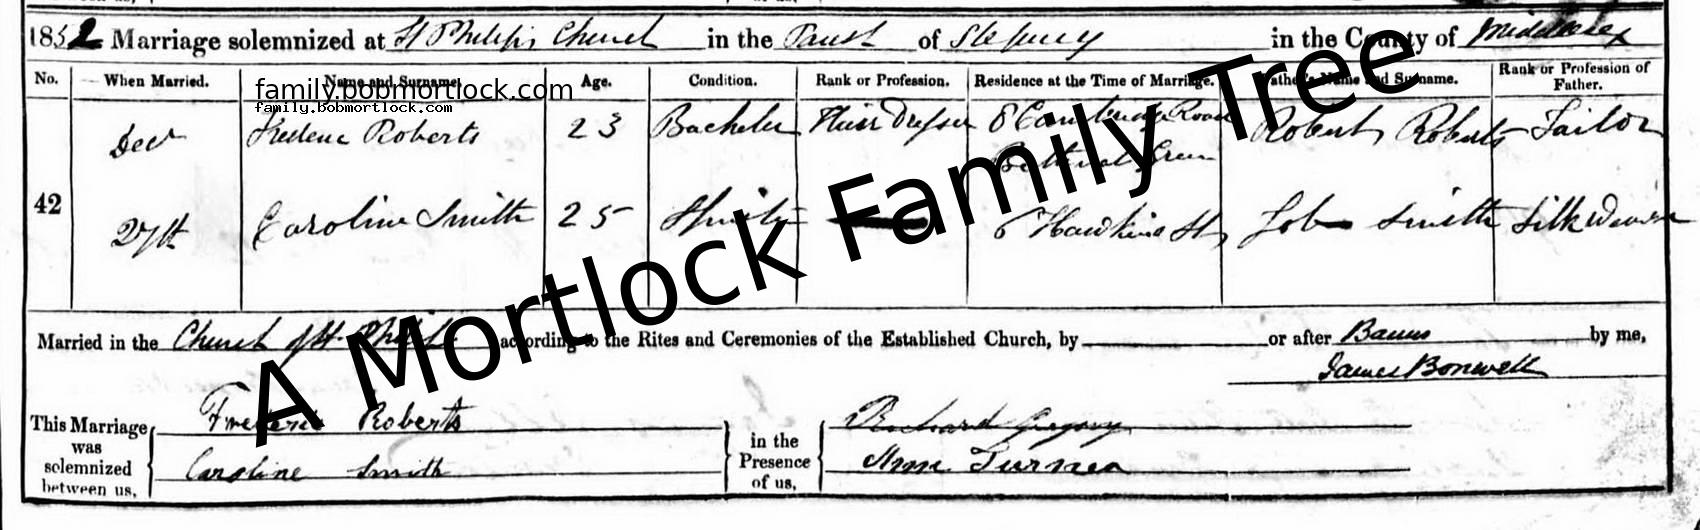 1852 Marriage solemnized at St Philip's Church in the Parish of Stepney in the County of Middlesex
No. When Married. Name and Surname. Age. Condition. Rank or Profession. Residence at the Time of Marriage. Father's Name and Surname. Rank or Profession of Father.
family.bobmortlock.com
family.bobmortlock.com
Dec Roberts 23 Bachelor Hair Dresser 8 Road Robert Roberts Tailor
Bethnal Green
42
27th Caroline Smith 25 6 Hawkins St Job Smith Silk Weaver
A Mortlock Family Tree
Married in the Church of St Philip according to the Rites and Ceremonies of the Established Church, by or after Banns by me,
James Bonwell
This Marriage was solemnized between us, Frederic Roberts in the Presence of us, Richard Gregory
Caroline Smith Ann Turner